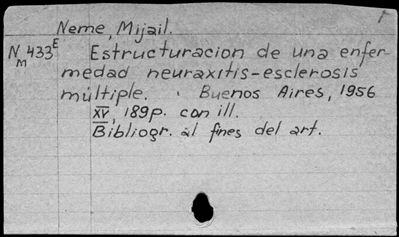 Neme, Mijail.
N M 433E Estructuracion de una enfer-
medad neuraxitis-esclerosis
múltiple. Buenos Aires, 1956
XV, 189p. con ill.
Bibliogr. al fines del art.